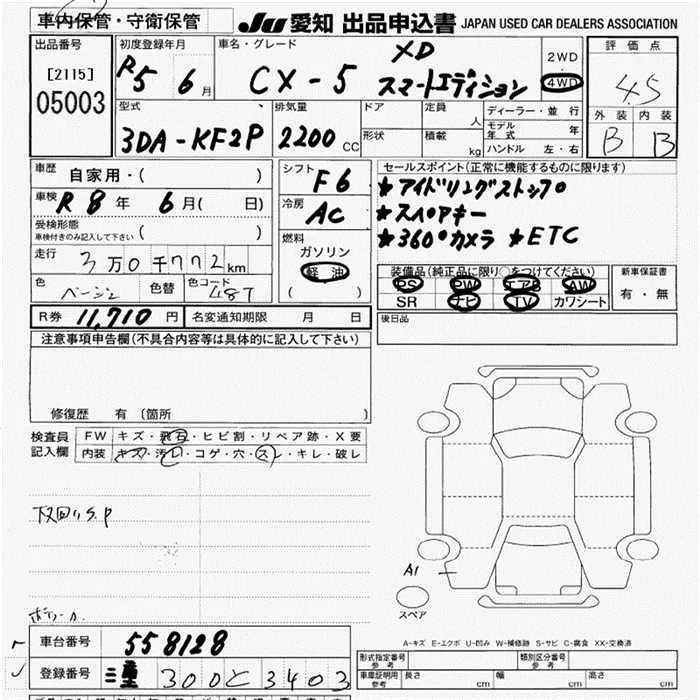 車内保管・守衛保管
JU 愛知 出品申込書 JAPAN USED CAR DEALERS ASSOCIATION
出品番号
[2115]
05003
初度登録年月
R5 6月
車名・グレード
XD
CX-5 スマートエディション
2WD
4WD
評価点
4.5
外装 内装
B B
型式
3DA-KF2P
排気量
2200 CC
ドア
形状
定員
人
積載
kg
ディーラー・並行
モデル年式 年
ハンドル 左・右
車歴
自家用・( )
車検
R8年 6月( 日)
受検形態
車検付きのみ記入して下さい ( )
走行
3万0千772km
色
ベージュ
色替
色コード
48T
シフト
F6
冷房
AC
燃料
ガソリン
軽油
( )
セールスポイント(正常に機能するものに限ります)
★アイドリングストップ
★スペアキー
★360°カメラ ★ETC
装備品(純正品に限り○をつけてください)
PS PW エアB AW
SR ナビ TV カワシート
新車保証書
有・無
R券 11,710円
名変通知期限 月 日
後日品
注意事項申告欄(不具合内容等は具体的に記入して下さい)
修復歴 有 (箇所 )
検査員記入欄
FW キズ・飛石・ヒビ割・リペア跡・X要
内装 キズ・汚レ・コゲ・穴・スレ・キレ・破レ
下回りS.P
A1
スペア
A-キズ E-エクボ U-凹み W-補修跡 S-サビ C-腐食 XX-交換済
車台番号
558128
登録番号
三重 300と3403
形式指定番号 参考
類別区分番号 参考
車庫証明用 参考
長さ cm
幅 cm
高さ cm